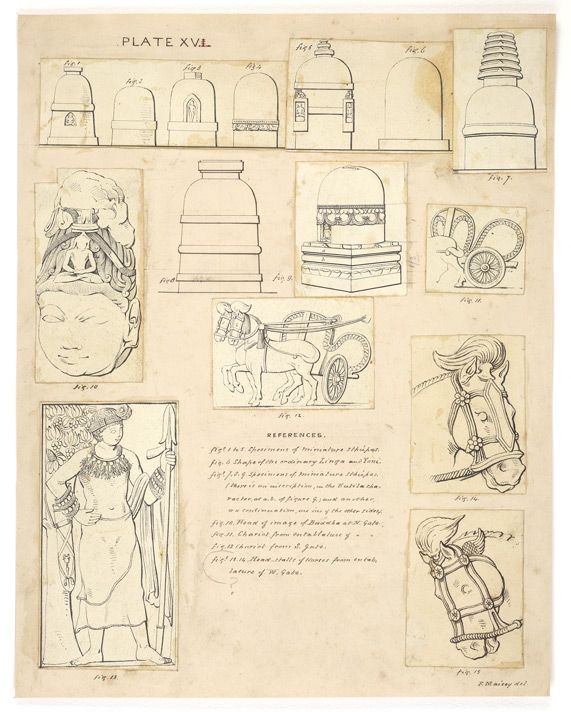 PLATE XVI
fig. 1
fig. 2
fig. 3
fig. 4
fig. 5
fig. 6
fig. 7.
fig. 8
fig. 9.
fig. 10
fig. 11.
fig. 12.
REFERENCES.
figs. 1 to 5. Specimens of miniature Sthúpas.
fig. 6. Shape of the ordinary Linga and Yoni.
figs. 7. 8. 9. Specimens of miniature Sthúpas.
(there is an inscription, in the Kutila cha-
racter, at a. b. of figure 9; and another,
a continuation, on one of the other sides).
fig. 10. Head of image of Buddha at N. Gate.
fig. 11. Chariot from entablature of
fig. 12 Chariot from S. Gate.
figs. 13. 14. Head-stalls of Horses from entab-
lature of W. Gate.
?
fig. 13.
fig. 14.
fig. 15
F. Maisey del.